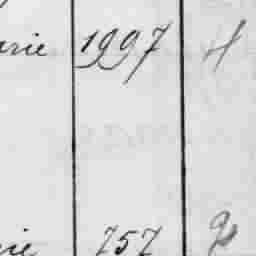 arie 1997 H
rie 757